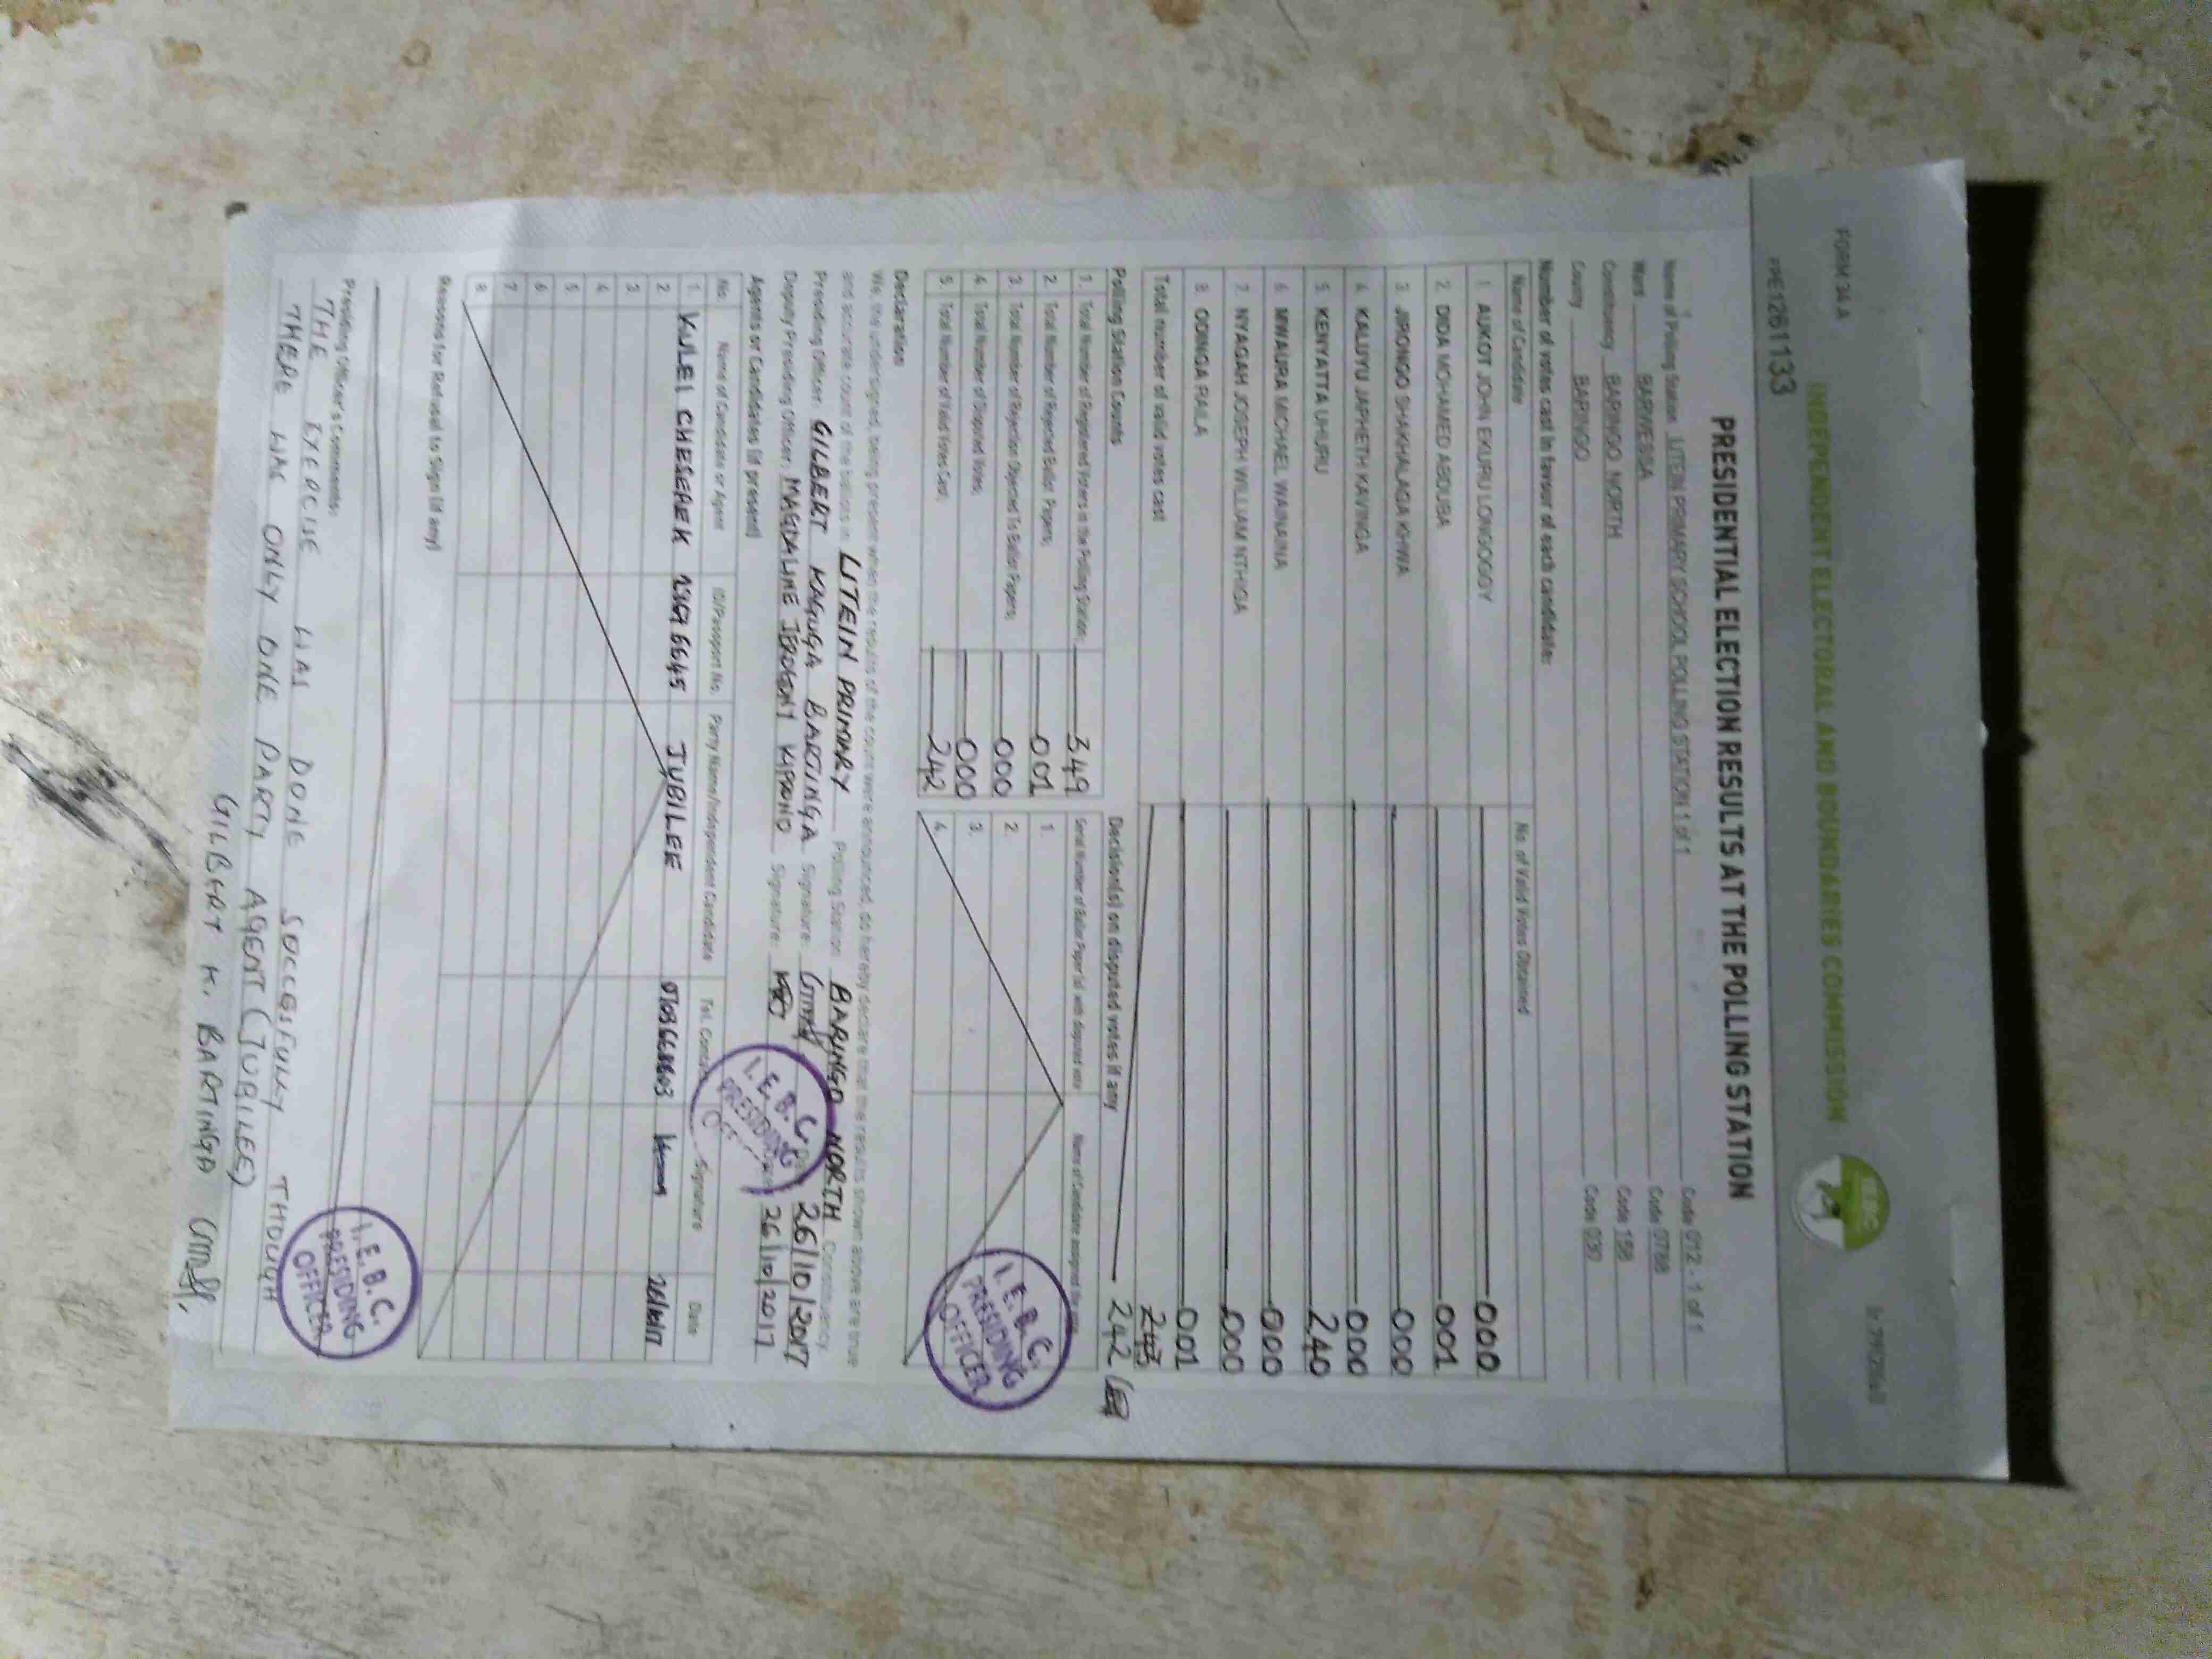 FORM 34A
INDEPENDENT ELECTORAL AND BOUNDARIES COMMISSION
PRESIDENTIAL ELECTION RESULTS AT THE POLLING STATION
Name of Polling Station LITEIN PRIMARY SCHOOL POLLING STATION 1 of 1 Code 012 - 1 of 1
Ward BARWESSA Code 0788
Constituency BARINGO NORTH Code 158
County BARINGO Code 030
Number of votes cast in favour of each candidate:
Name of Candidate No. of Valid Votes Obtained
1. AUKOT JOHN EKURU LONGOGGY 000
2. DIDA MOHAMED ABDUBA 001
3. JIRONGO SHAKHALAGA KHWA 000
4. KALUYU JAPHETH KAVINGA 000
5. KENYATTA UHURU 240
6. MWAURA MICHAEL WAINAINA 000
7. NYAGAH JOSEPH WILLIAM NTHIGA 000
8. ODINGA RAILA 001
Total number of valid votes cast 242
Polling Station Counts
1. Total Number of Registered Voters in the Polling Station; 349
2. Total Number of Rejected Ballot Papers; 001
3. Total Number of Rejection Objected To Ballot Papers; 000
4. Total Number of Disputed Votes; 000
5. Total Number of Valid Votes Cast; 242
Decision(s) on disputed votes if any
Serial Number of Ballot Paper(s) with disputed vote Name of Candidate assigned the vote
1.
2.
3.
4.
I.E.B.C. PRESIDING OFFICER
Declaration
We, the undersigned, being present when the results of the count were announced, do hereby declare that the results shown above are true
and accurate count of the ballots in LITEIN PRIMARY Polling Station BARINGO NORTH Constituency.
Presiding Officer: GILBERT KAGUGA BARTINGA Signature: 26/10/2017
Deputy Presiding Officer: MAGDALINE JEROGONY KIPRONO Signature: 26/10/2017
I.E.B.C. PRESIDING
Agents or Candidates (if present)
No. Name of Candidate or Agent ID/Passport No. Party Name/Independent Candidate Tel. Contact Signature Date
1. KULEI CHESEREK 23676645 JUBILEE 26/10/17
2.
3.
4.
5.
6.
7.
8.
Reasons for Refusal to Sign (if any)
Presiding Officer's Comments:
THE EXERCISE WAS DONE SUCCESSFULLY THOUGH
THERE WAS ONLY ONE PARTY AGENT (JUBILEE)
GILBERT K. BARTINGA
I.E.B.C. PRESIDING OFFICER